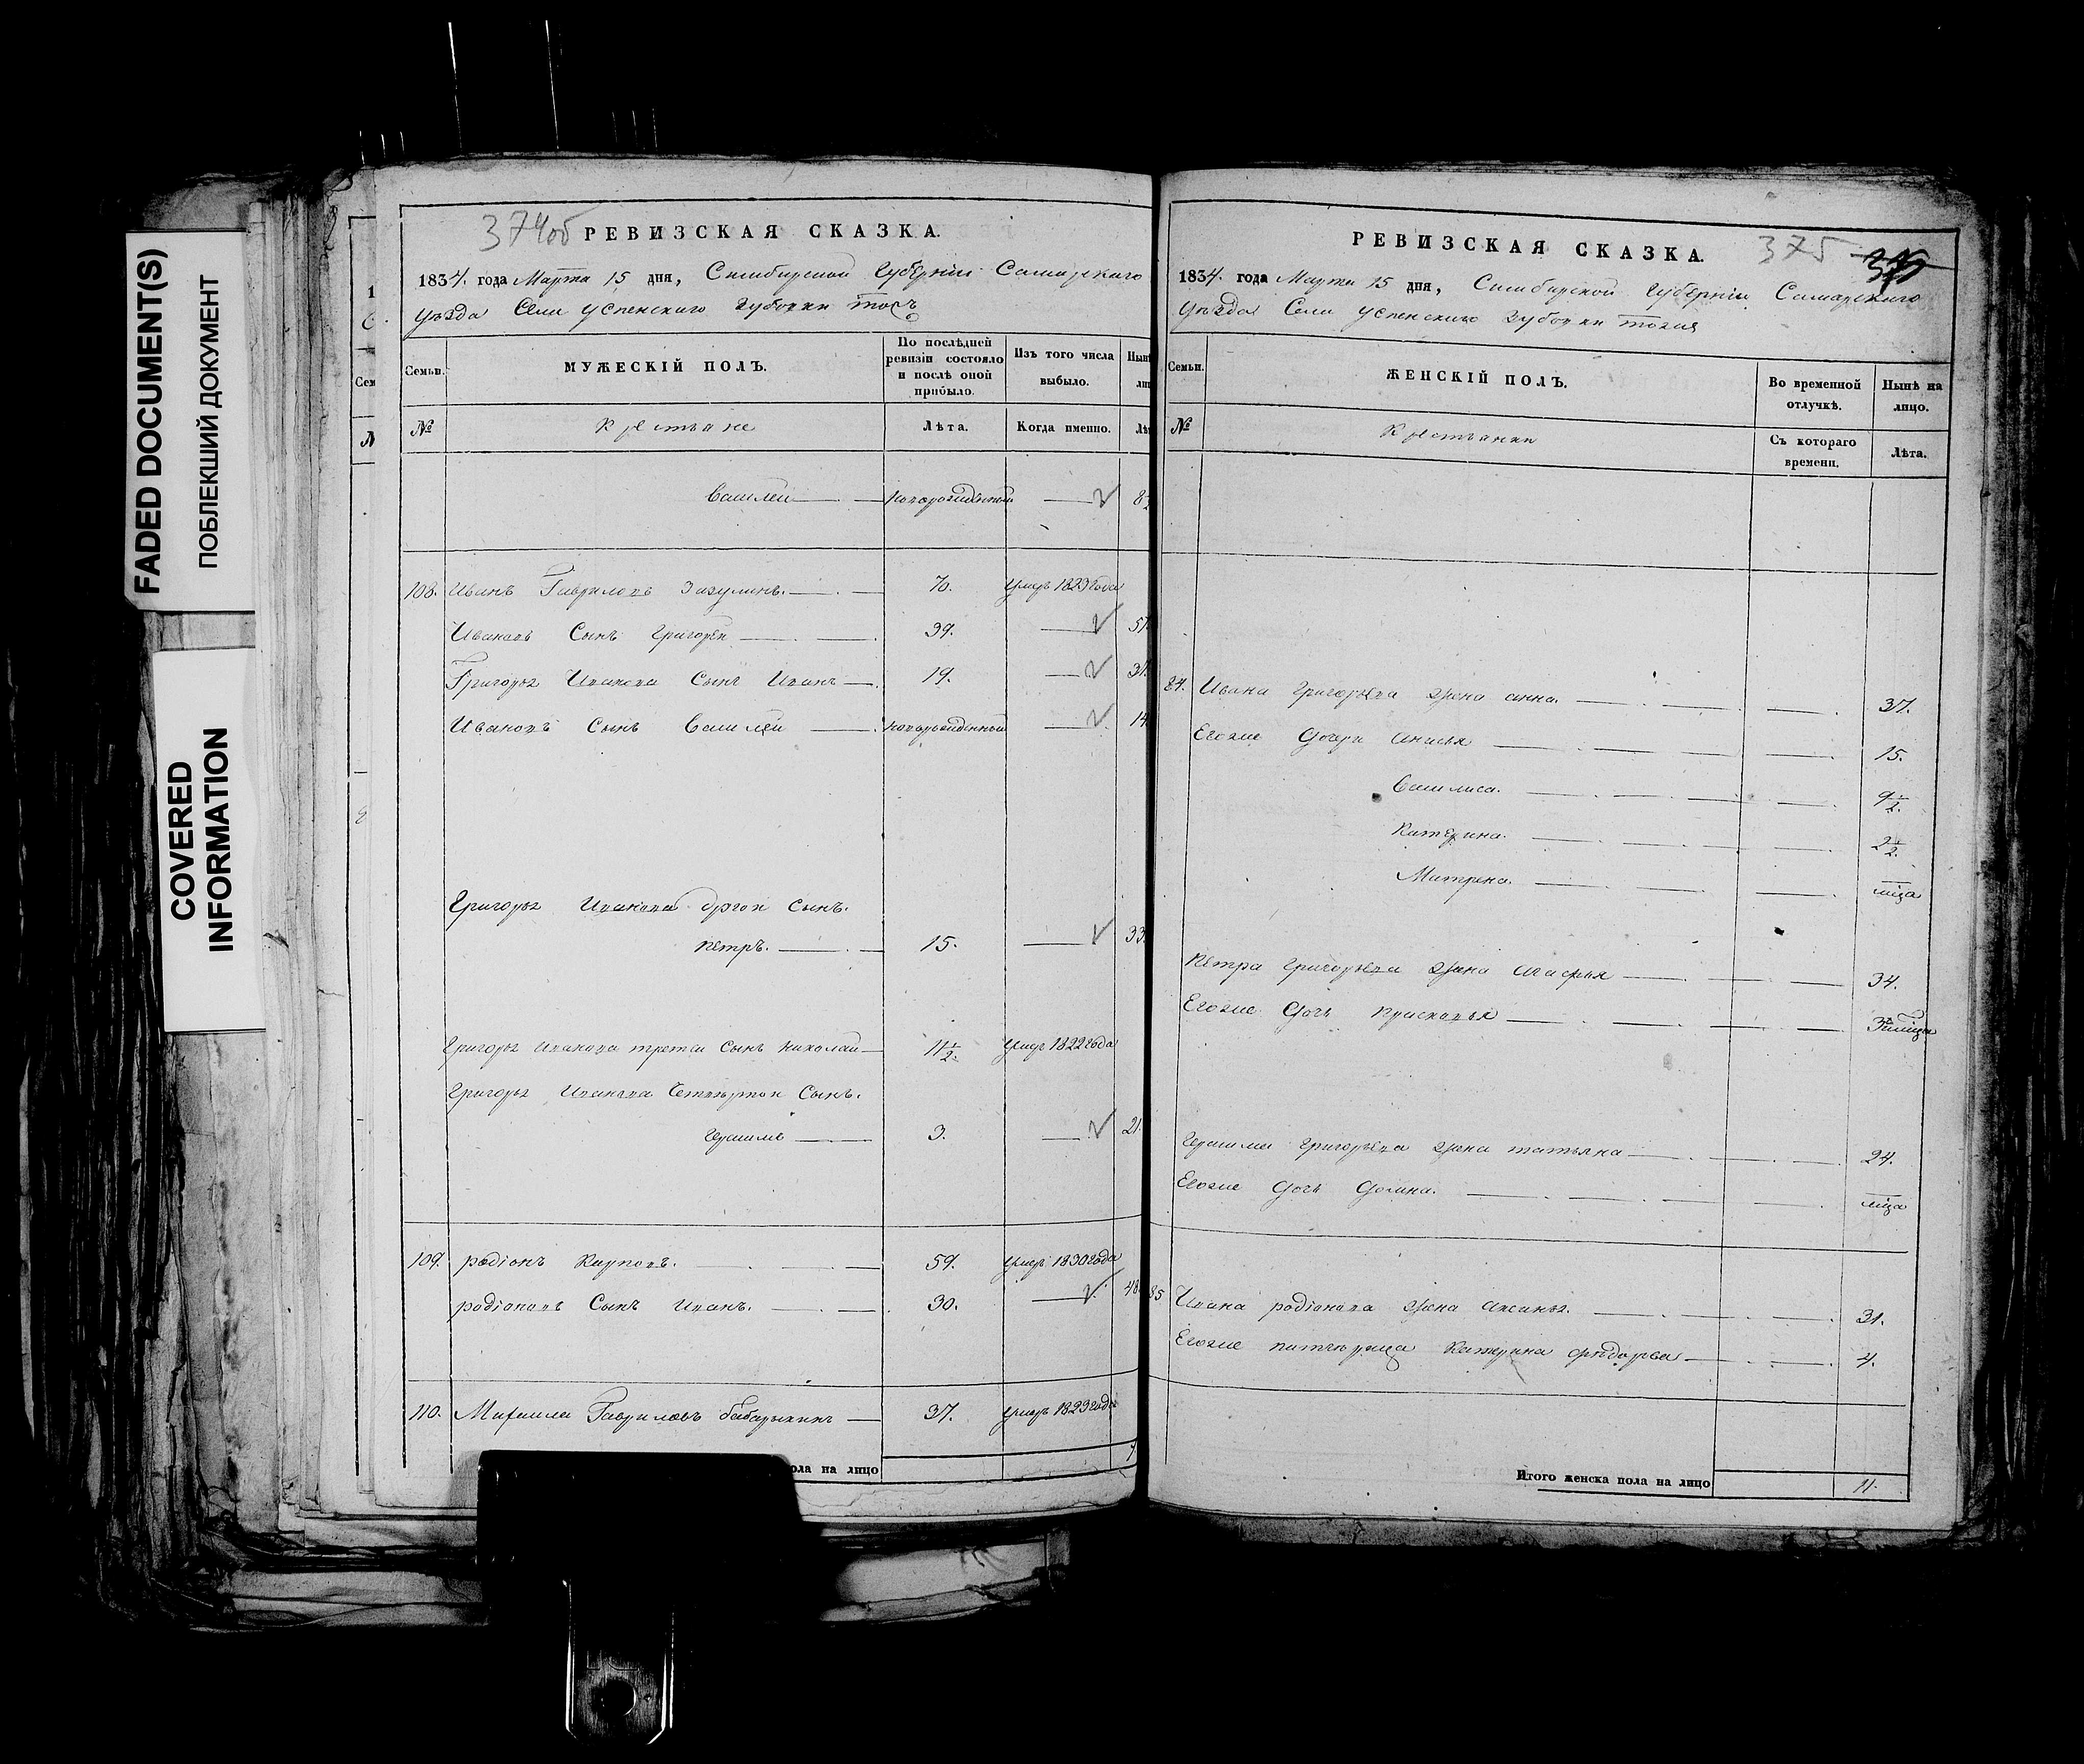 FADED DOCUMENT(S)
ПОБЛЕКШИЙ ДОКУМЕНТ
COVERED
INFORMATION
374об
РЕВИЗСКАЯ СКАЗКА.
1834. года Марта 15 дня, Симбирской Губернiи Самарского
уѣзда Села Успенского Губовки тоєъ
Семьи.
МУЖЕСКІЙ ПОЛЪ.
По послѣдней ревизіи состояло и послѣ оной прибыло.
Изъ того числа выбыло.
№
Крестьяне
Лѣта.
Когда именно.
Василеи новорожденный
108. Иванъ Гавриловъ Зазулинъ. 70. умеръ 1823 года
Ивановъ Сынъ Григореи 39. 51.
Григорья Иванова Сынъ Иванъ 19. 31.
Ивановъ Сынъ Василеи новорожденный 14
Григорья Иванова другои Сынъ.
Петръ. 15. 33
Григорья Иванова третеи Сынъ Николаи 11 1/2. умеръ 1822 года
Григорья Иванова Четвертои Сынъ.
Герасимъ 3. 21.
109. родіонъ Карповъ. 59. умеръ 1830 года
родіоновъ Сынъ Иванъ. 30. 48
110. Михаила Гавриловъ бабарыкинъ 37. умеръ 1823 года
пола на лицо 7
РЕВИЗСКАЯ СКАЗКА.
375
1834. года Марта 15 дня, Симбирской Губернiи Самарского
уѣзда Села Успенского Губовки тожъ
Семьи.
ЖЕНСКІЙ ПОЛЪ.
Во временной отлучкѣ.
Нынѣ на лицо.
№
Крестьянки
Съ котораго времени.
Лѣта.
84. Ивана Григорьева жена анна. 37.
Егоже дочери анисья 15.
Василиса. 9 1/2.
Катерина. 2 1/2.
Матрена. мѣца
Петра Григорьева жена агафья 34.
Егоже дочь Прасковья 3 мѣца
Герасима Григорьева жена татьяна 24.
Егоже дочь домна. мѣца
85 Ивана родіонова жена аксинья. 31.
Егоже питомица Катерина федорова 4.
Итого женска пола на лицо 11.